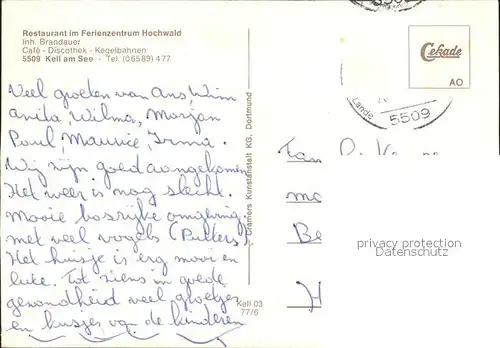 Restaurant im Ferienzentrum Hochwald
Inh. Brandauer
Café - Discothek - Kegelbahnen
5509 Kell am See - Tel. (06589) 477
Cekade
AO
Lande
5509
Veel groeten van Ans, Wim
Anita, Wilma, Marjan
Paul, Maurice, Irma.
Wij zijn goed aangekomen
Het weer is nog slecht.
Mooie bosrijke omgeving
met veel vogels (Putters)
Het huisje is erg mooi en
luke. Tot ziens in goede
gezondheid veel groetjes
en kusjes van de kinderen
Cramers Kunstanstalt KG, Dortmund
Kell 03
77/6
Fam
Be
H
privacy protection
Datenschutz